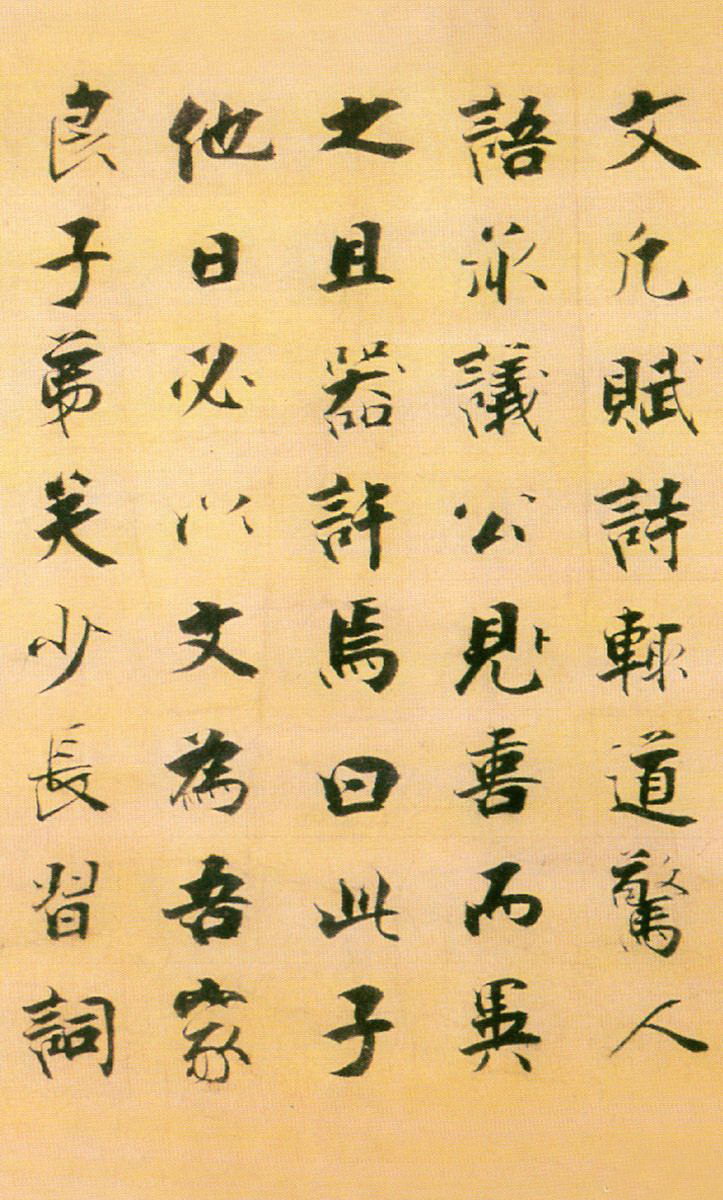 文凡賦詩輙道驚人
語承議公見喜而異
之且器許焉曰此子
他日必以文為吾家
良子弟矣少長習詞